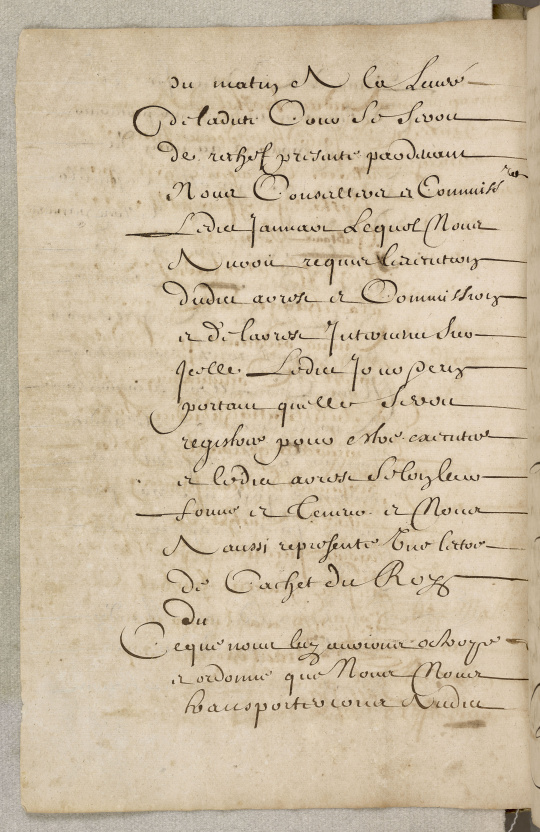 du matin et a la Levée
de ladite Cour se seroit
de rechef presenté pardevant
Nous Conseiller et Commissre
Ledict Januart Lequel Nous
Auroit requis lexecution
dudict arrest et Commission
et de larrest Intervenu sur
Icelle Ledict Jour
portant quelle seroit
registrée pour estre executée
et ledict arrest selon leur
forme et teneur et Nous
A aussi representé une lettre
de Cachet du Roy
du
Ce que nous luy aurions octroyé
et ordonné que Nous Nous
transporterions Audict